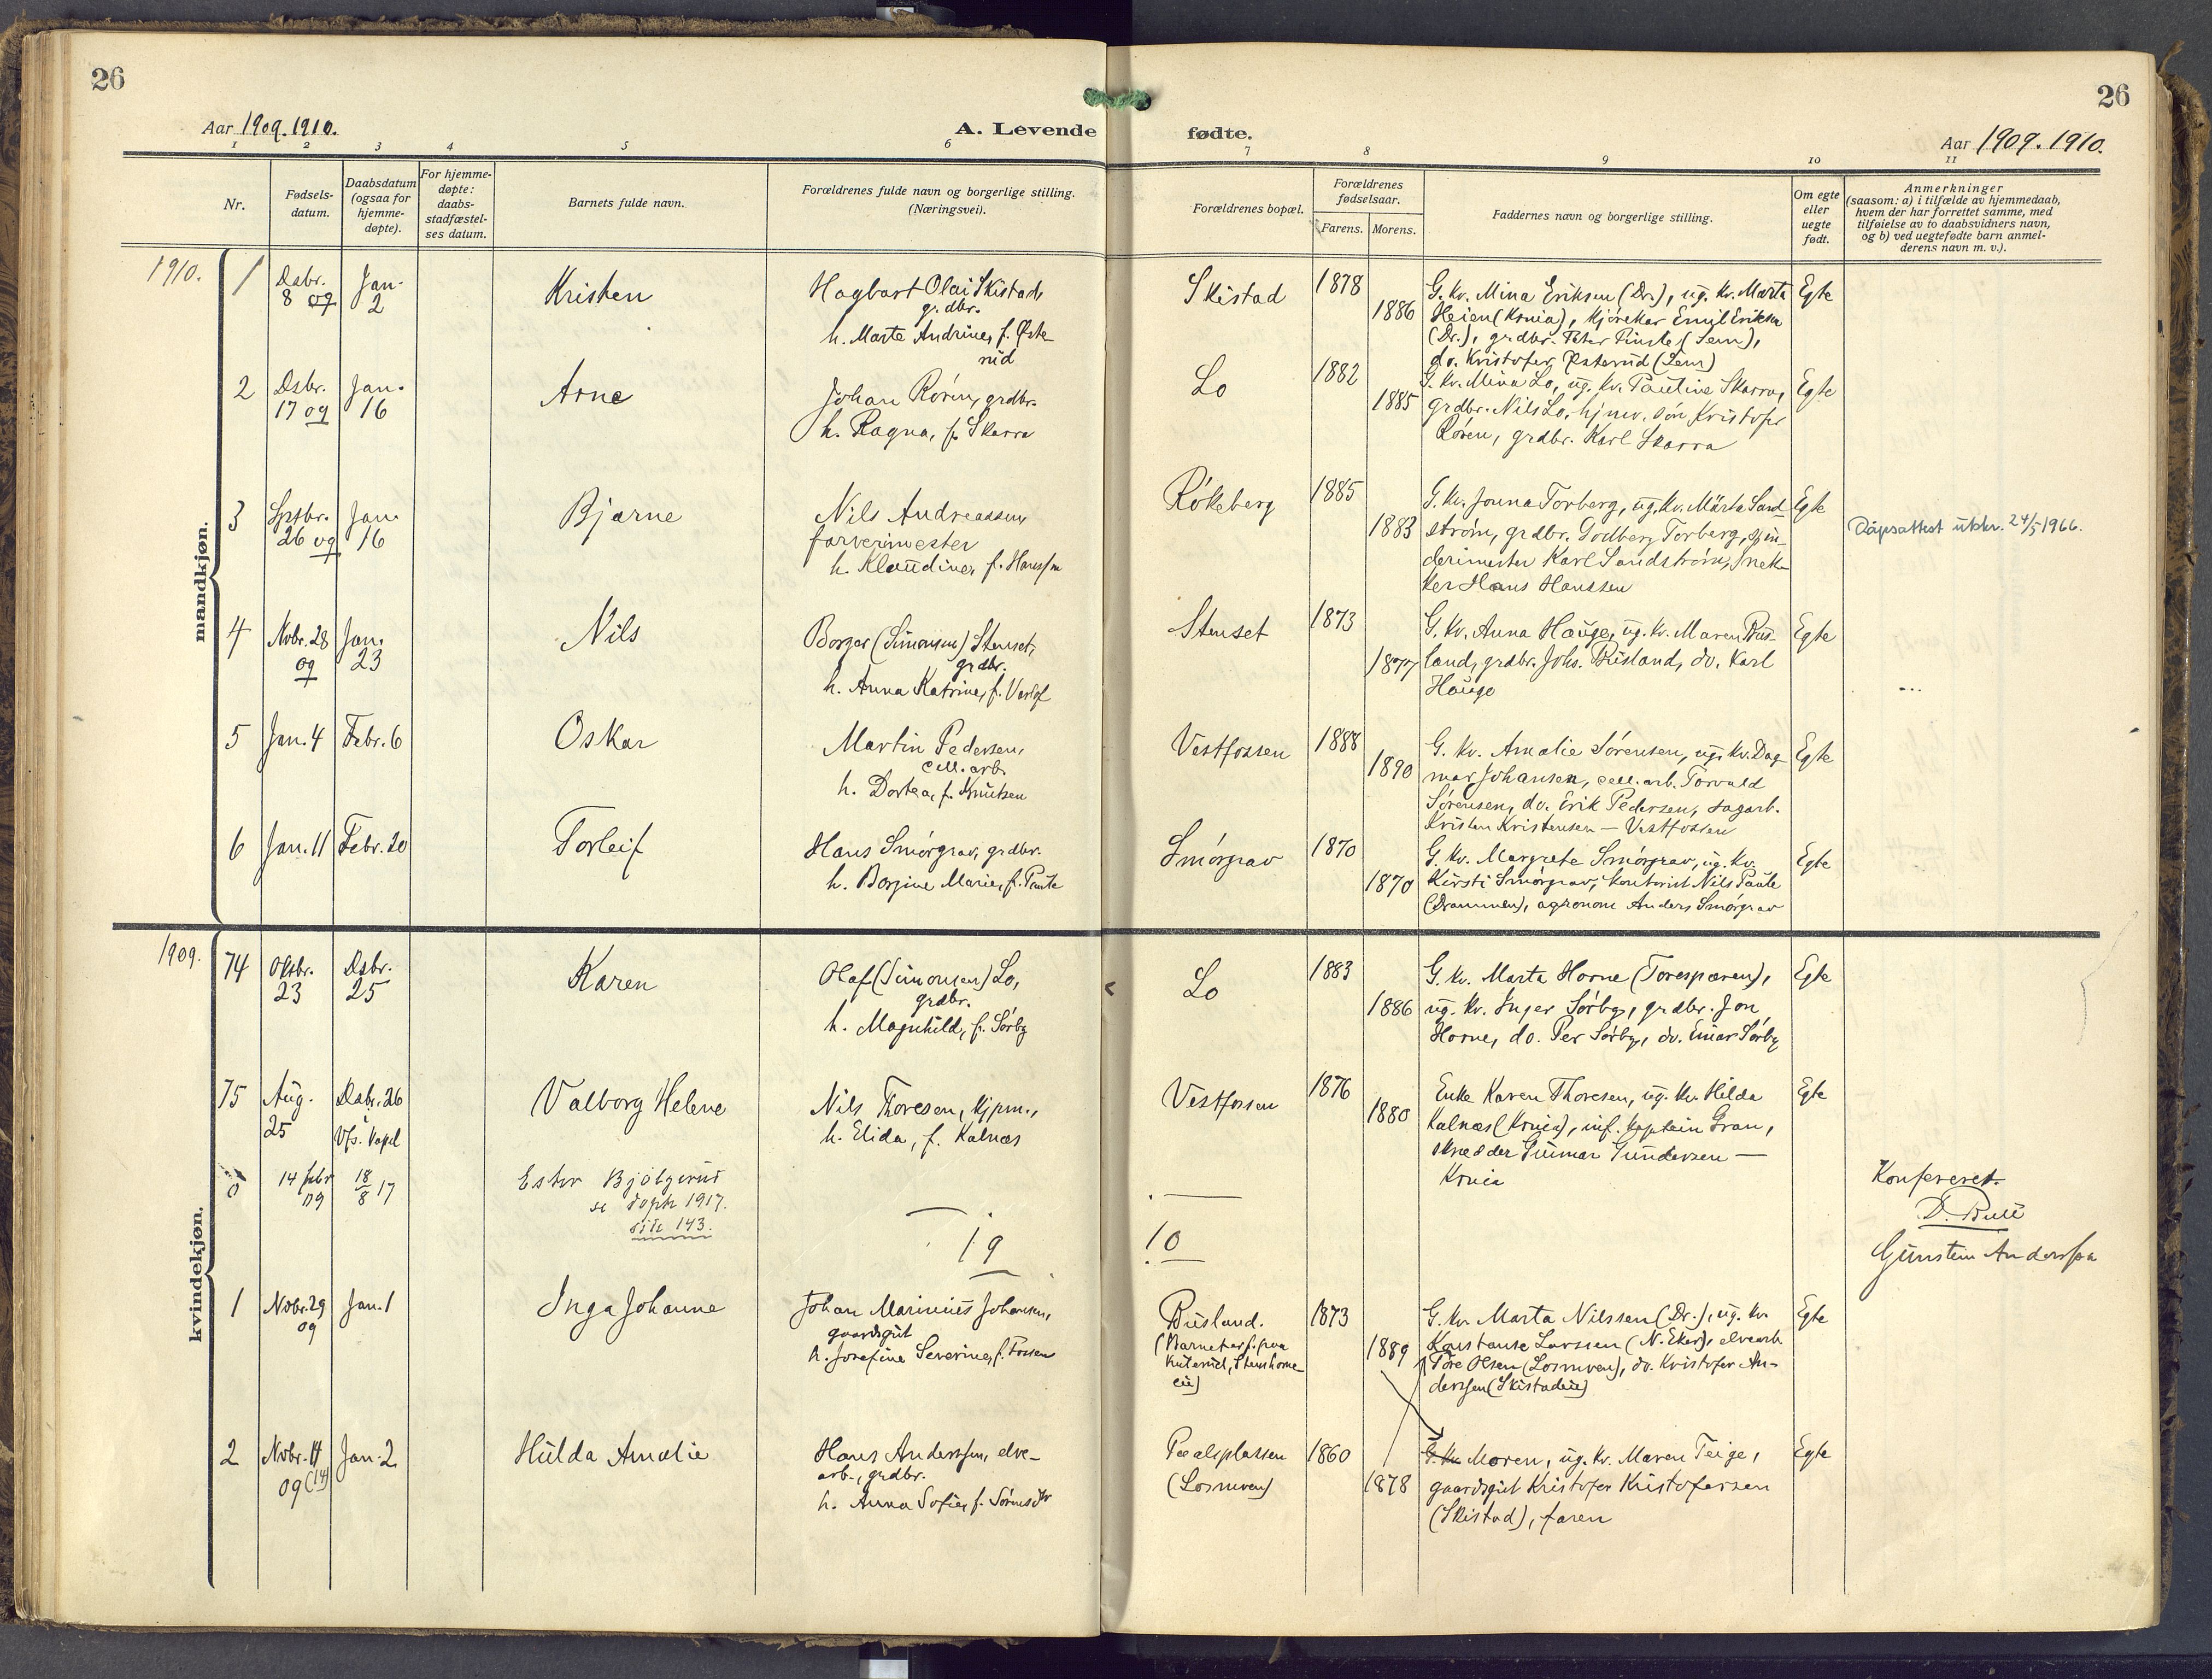 26
26
Aar 1909. 1910.
A. Levende
fødte.
Aar 1909. 1910.
1 2 3 4 5 6 7 8 9 10 11
Nr.
Fødsels-
datum.
Daabsdatum
(ogsaa for
hjemme-
døpte).
For hjemme-
døpte:
daabs-
stadfæstel-
ses datum.
Barnets fulde navn.
Forældrenes fulde navn og borgerlige stilling.
(Næringsvei).
Forældrenes bopæl.
Forældrenes
fødselsaar.
Farens. Morens.
Faddernes navn og borgerlige stilling.
Om egte
eller
uegte
født.
Anmerkninger
(saasom: a) i tilfælde av hjemmedaab,
hvem der har forrettet samme, med
tilføielse av to daabsvidners navn,
og b) ved uegtefødte barn anmel-
derens navn m. v.).
mandkjøn.
1910.
1
Dsbr.
8 09
Jan.
2
Kristen
Hagbart Olai Skistad,
g.dbr.
h. Marte Andrine, f. Øste
rud
Skistad
1878
1886
G. kv. Mina Eriksen (Dr.), ug. kv. Marta
Heien (Kr.nia), kjørekar Emil Eriksen
(Dr.), grdbr. Peter (Sem),
do. Kristofer Østerud (Sem)
Egte
2
Dsbr.
17 09
Jan.
16
Arne
Johan Røren, grdbr.
h. Ragna, f. Skarra
Lo
1882
1885
G. kv. Mina Lo, ug. kv. Pauline Skarra,
grdbr. Nils Lo, hjmv. søn Kristofer
Røren, grdbr. Karl Skarra
Egte
3
Sptbr.
26 09
Jan.
16
Bjarne
Nils Andreassen,
farverimester
h. Klaudine, f. Hanssen
Røkeberg
1885
1883
G. kv. Jonna Torberg, ug. kv. Märta Sand-
strøm, grdbr. Godberg Torberg, spin-
derimester Karl Sandstrøm, snek-
ker Hans Hanssen
Egte
Dåpsattest utskr. 24/5 1966.
4
Nvbr. 28
09
Jan.
23
Nils
Borger (Simonsen) Stenset,
grdbr.
h. Anna Katrine, f. Varlo
Stenset
1873
1877
G. kv. Anna Hauge, ug. kv. Maren Bus-
land, grdbr. Johs. Busland, do. Karl
Hauge
Egte
5
Jan. 4
Febr. 6
Oskar
Martin Pedersen,
cell. arb.
h. Dortea, f. Knutsen
Vestfossen
1888
1890
G. kv. Amalie Sørensen, ug. kv. Dag-
mar Johansen, cell. arb. Torvald
Sørensen, do. Erik Pedersen, sagarb.
Kristen Kristensen — Vestfossen
Egte
6
Jan. 11
Febr. 20
Torleif
Hans Smørgrav, grdbr.
h. Borgine Marie, f. Paule
Smørgrav
1870
1870
G. kv. Margrete Smørgrav, ug. kv.
Kirsti Smørgrav, kontorist Nils Paule
(Drammen), agronom Anders Smørgrav
Egte
kvindekjøn.
1909.
74
Oktbr.
23
Dsbr.
25
Karen
Olaf (Simonsen) Lo,
grdbr.
h. Magnhild, f. Sørby
Lo
1883
1886
G. kv. Marta Horne (Torespæren),
ug. kv. Inger Sørby, grdbr. Jon
Horne, do. Per Sørby, do. Einar Sørby
Egte
75
Aug.
25
Dsbr. 26
i
Vfs. kapel
Valborg Helene
Nils Thoresen, kjpm.,
h. Elida, f. Kalnæs
Vestfossen
1876
1880
Enke Karen Thoresen, ug. kv. Hilda
Kalnæs (Kr.nia), inf. kaptein Gran,
skredder Gunnar Gundersen —
Kr.nia
Egte
0
14 febr
09
18/8 17
Ester Bjølgerud
se døpte 1917.
side 143.
19
10
Konfereret.
D. Bull
Gunstein Anderssen
1
Nvbr. 29
09
Jan. 1
Inga Johanne
Johan Marinius Johansen,
gaardsgut
h. Josefine Severine, f. Fossen
Busland.
(Barnet er f. paa
Kuterud, Stenshorne
eie)
1873
1889
G. kv. Marta Nilssen (Dr.), ug. kv.
Konstanse Larssen (N. Eker), elvearb.
Tore Olsen (Losmoen), do. Kristofer An-
derssen (Skistadeie)
Egte
2
Nvbr. 14
09 (14)
Jan. 2
Hulda Amalie
Hans Anderssen, elve-
arb., grdbr.
h. Anna Sofie, f. Sørensdtr
Paalsplassen
(Losmoen)
1860
1878
G. kv. Moren, ug. kv. Maren Teige,
gaardsgut Kristofer Kristofersen
(Skistad), faren
Egte